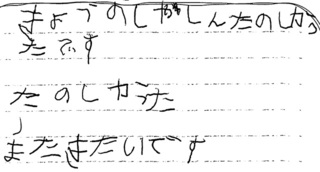 きょうのしゃしんたのしかっ
たです
たのしかった
またきたいです